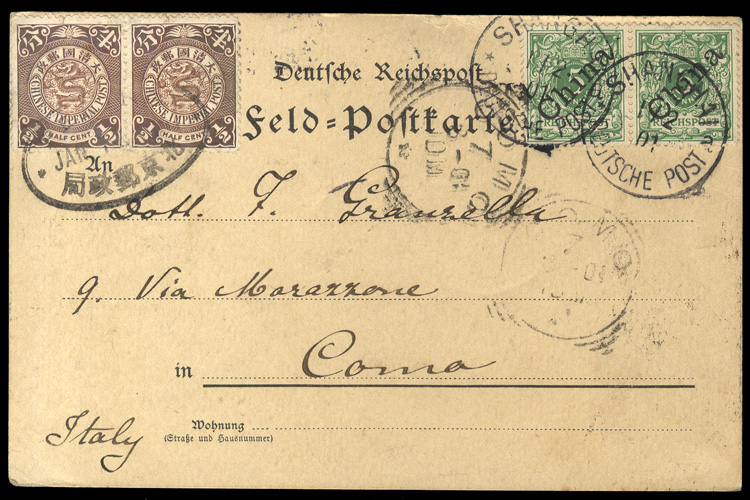 分 半 分 半
政郵國清大 政郵國清大
CHINESE IMPERIAL POST CHINESE IMPERIAL POST
1/2 HALF CENT 1/2 1/2 HALF CENT 1/2
JAN
北京郵政局
Deutsche Reichspost
Feld=Postkarte
China China
REICHSPOST REICHSPOST
SHANGHAI
SHANGHAI
01
DEUTSCHE POST
a
COMO
7
An
Dott. F. Granzella
9. Via Marazzone
in Como
Italy
Wohnung
(Straße und Hausnummer)